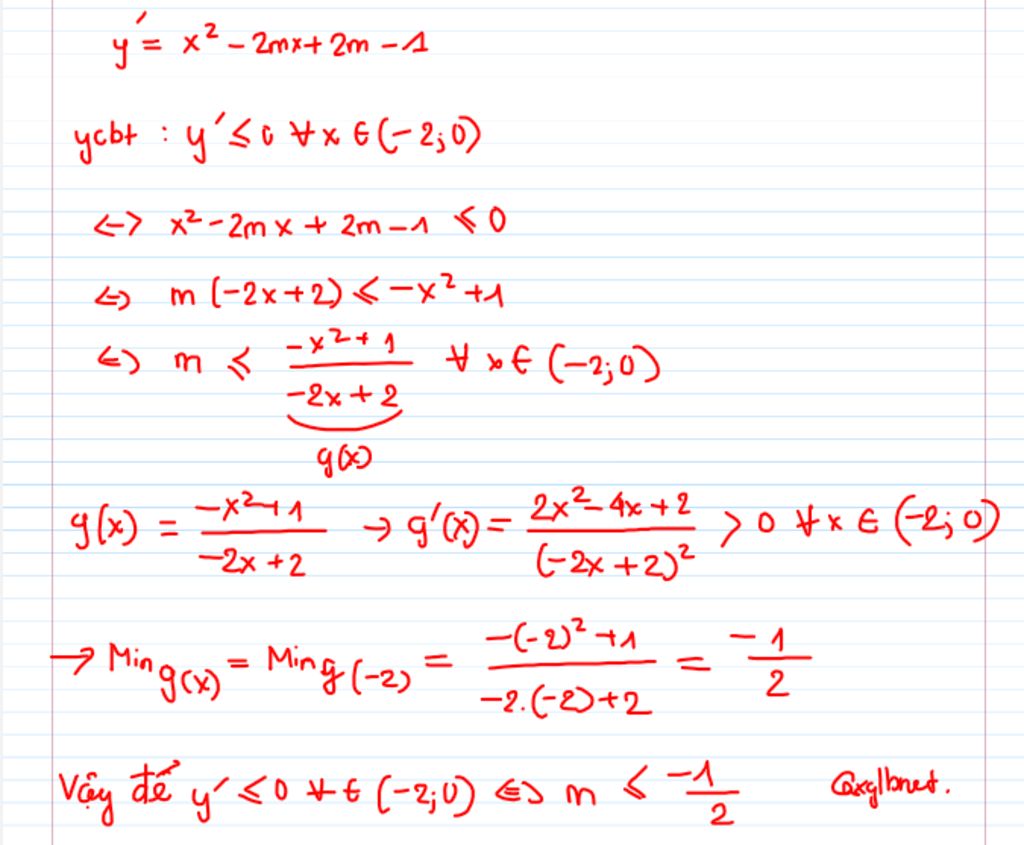 y' = x² - 2mx + 2m - 1
ycbt : y' ≤ 0 ∀ x ∈ (-2;0)
<-> x² - 2mx + 2m - 1 ≤ 0
<=> m (-2x + 2) ≤ -x² + 1
<=> m ≤ (-x² + 1)/(-2x + 2) ∀ x ∈ (-2;0)
g(x)
g(x) = (-x² + 1)/(-2x + 2) → g'(x) = (2x² - 4x + 2)/(-2x + 2)² > 0 ∀ x ∈ (-2;0)
→ Min g(x) = Min g(-2) = (-(-2)² + 1)/(-2.(-2) + 2) = -1/2
Vậy để y' ≤ 0 ∀ ∈ (-2;0) <=> m ≤ -1/2